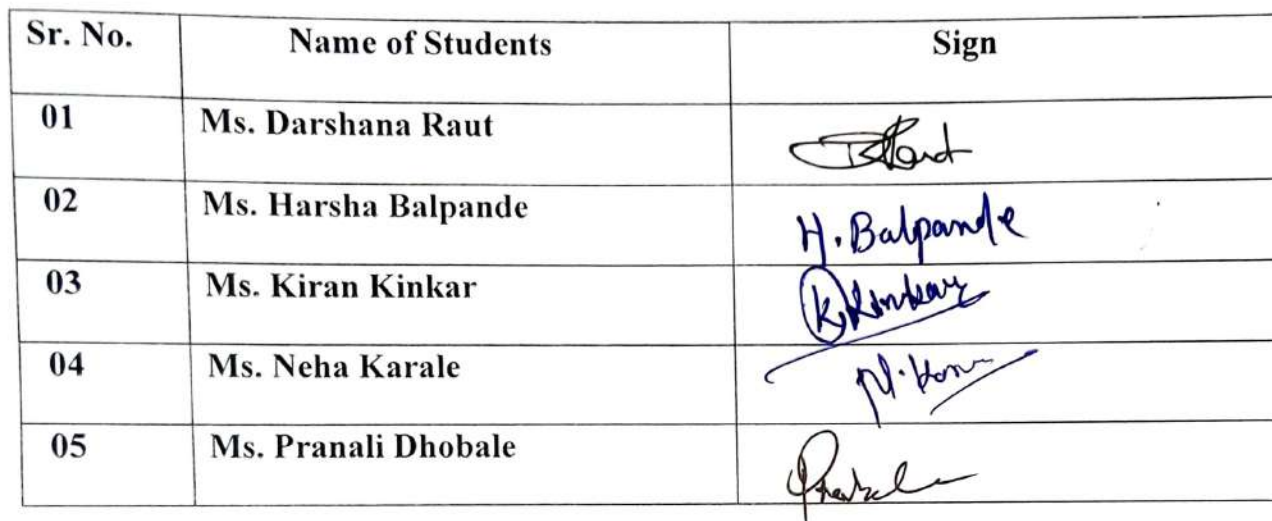 Sr. No. Name of Students Sign
01 Ms. Darshana Raut
02 Ms. Harsha Balpande H. Balpande
03 Ms. Kiran Kinkar K Kinkar
04 Ms. Neha Karale
05 Ms. Pranali Dhobale